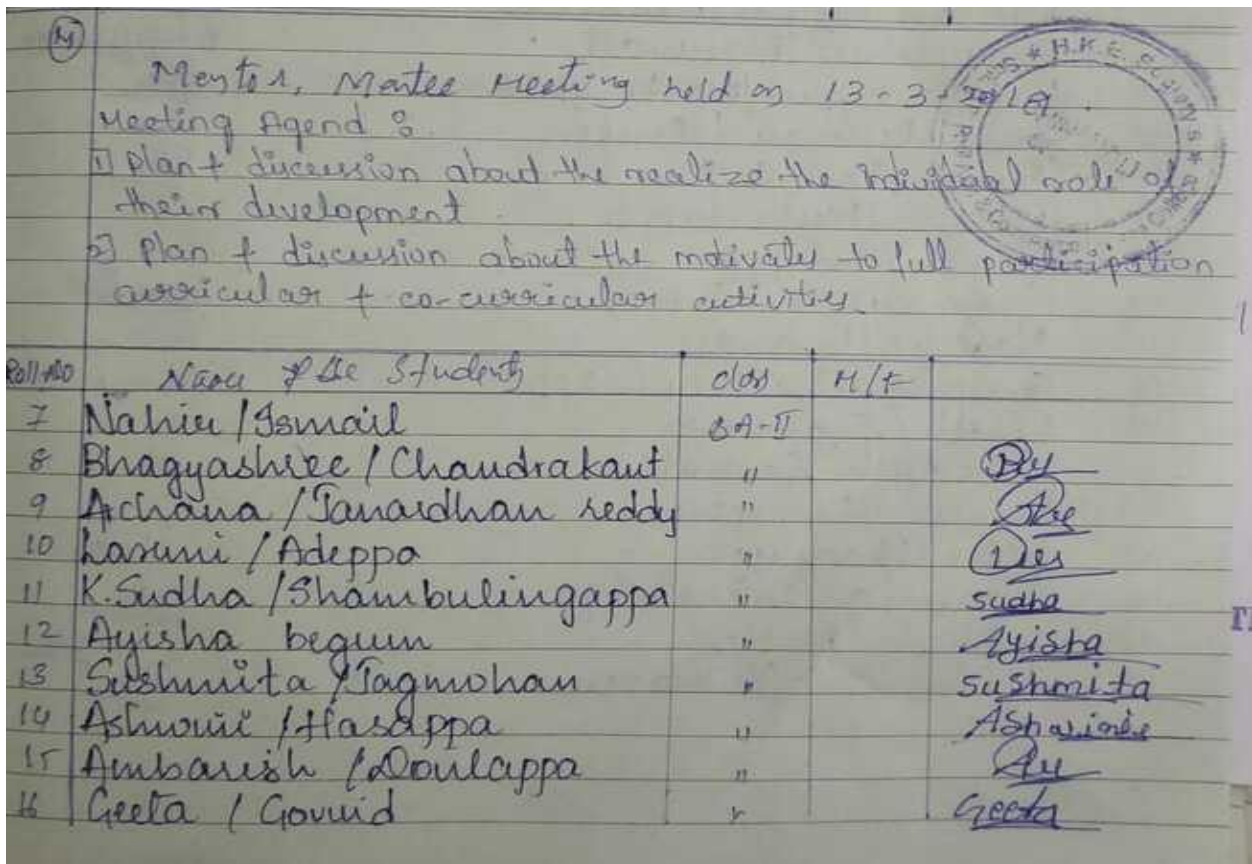 Mentor, Mantee Meeting held on 13-3-2019.
Meeting Agend :
1] Plan + discussion about the realize the individual role of
their development.
2] Plan + discussion about the motivaty to full participation
curricular + co-curricular activities.
Roll.No Name of the Students class M/F
7 Nahid / Ismail BA-II
8 Bhagyashree / Chandrakant "
9 Archana / Janardhan reddy "
10 Laxmi / Adeppa "
11 K.Sudha / Shambulingappa " Sudha
12 Ayisha begum " Ayisha
13 Sushmita / Jagmohan " Sushmita
14 Ashwini / Hasappa "
15 Ambarish / Doulappa "
16 Geeta / Govind " Geeta